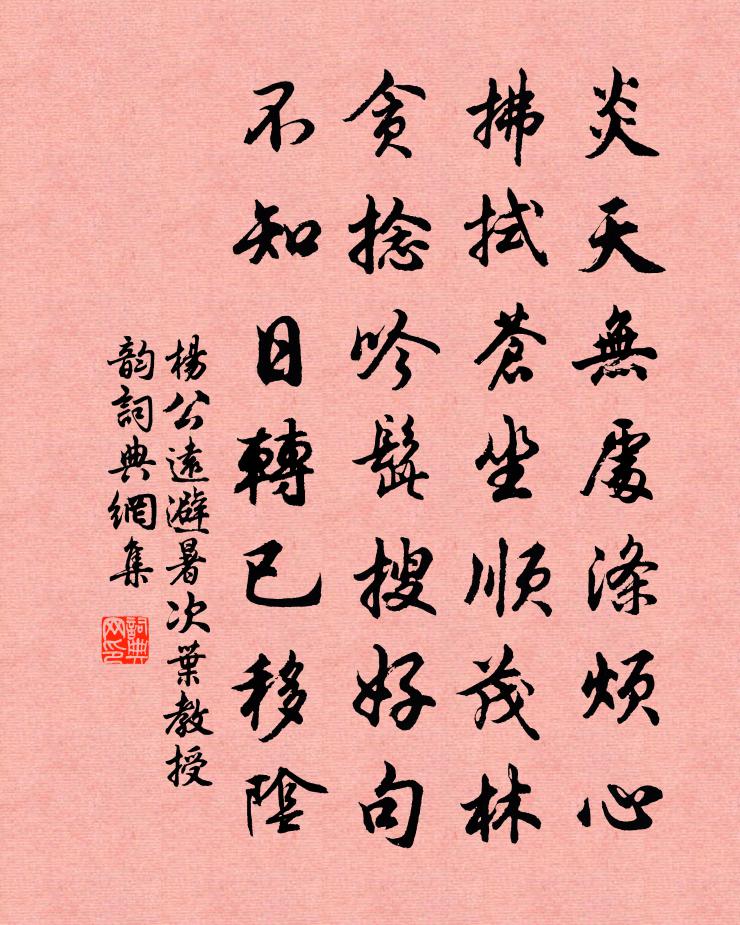 炎天無處滌煩心
拂拭蒼坐順茂林
貪捻吟髭搜好句
不知日轉已移陰
楊公遠避暑次葉教授
韵詞典網集
詞典網印